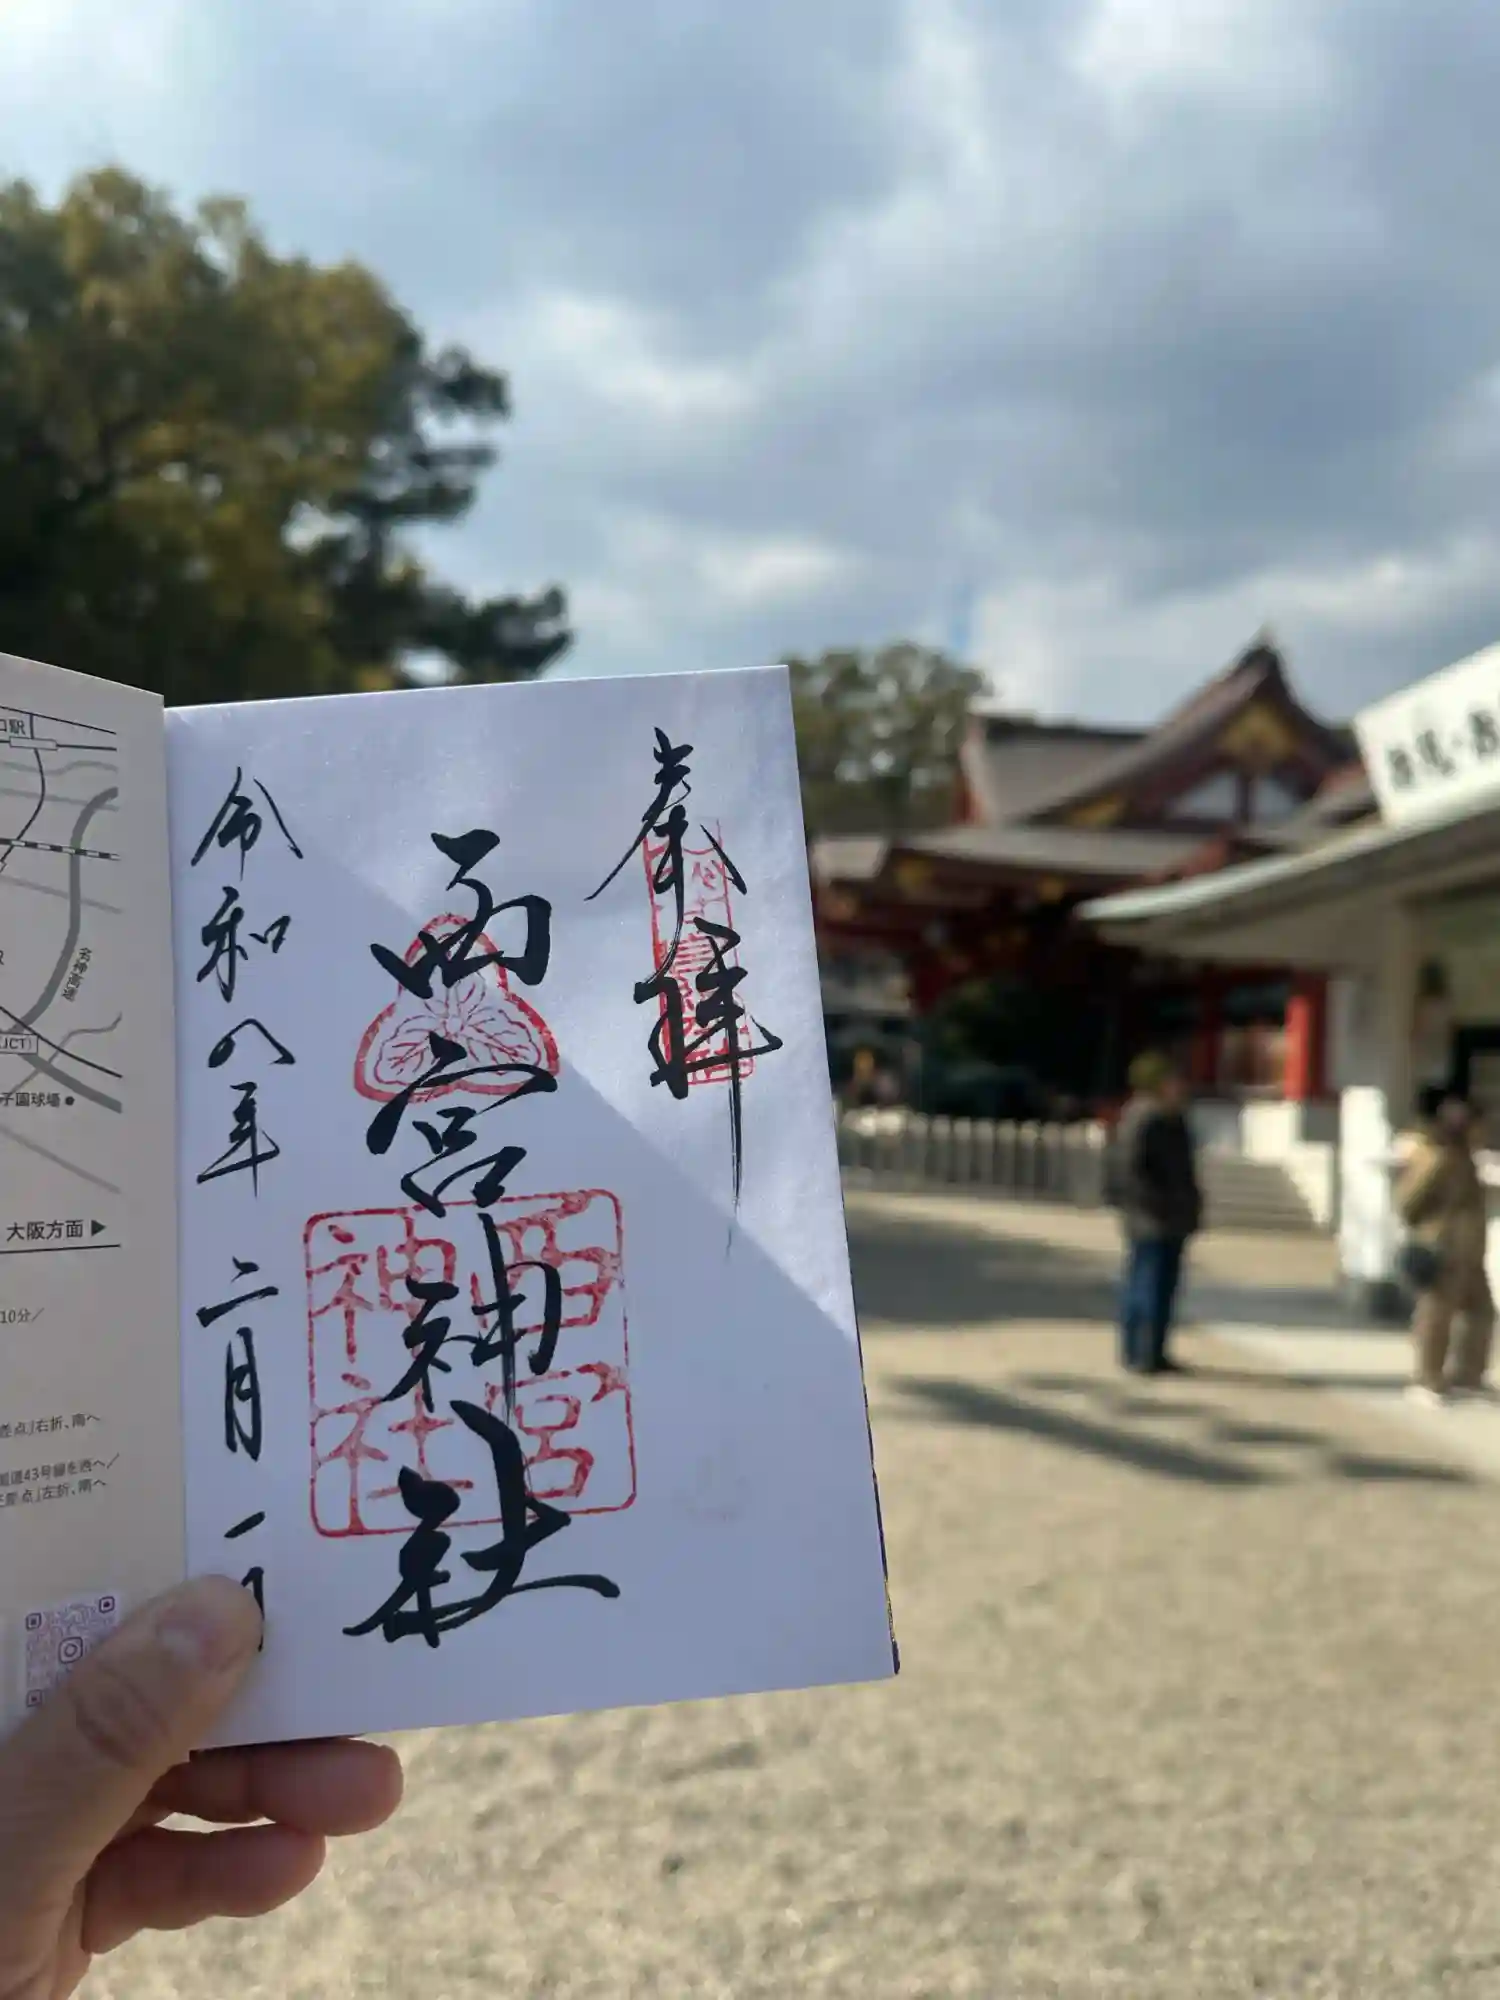 奉拝
西宮神社
西宮
神社
令和八年二月一日
口駅
名神高速
JCT)
子園球場●
大阪方面▶
10分/
差点」右折、南へ
国道43号線を西へ/
差点」左折、南へ